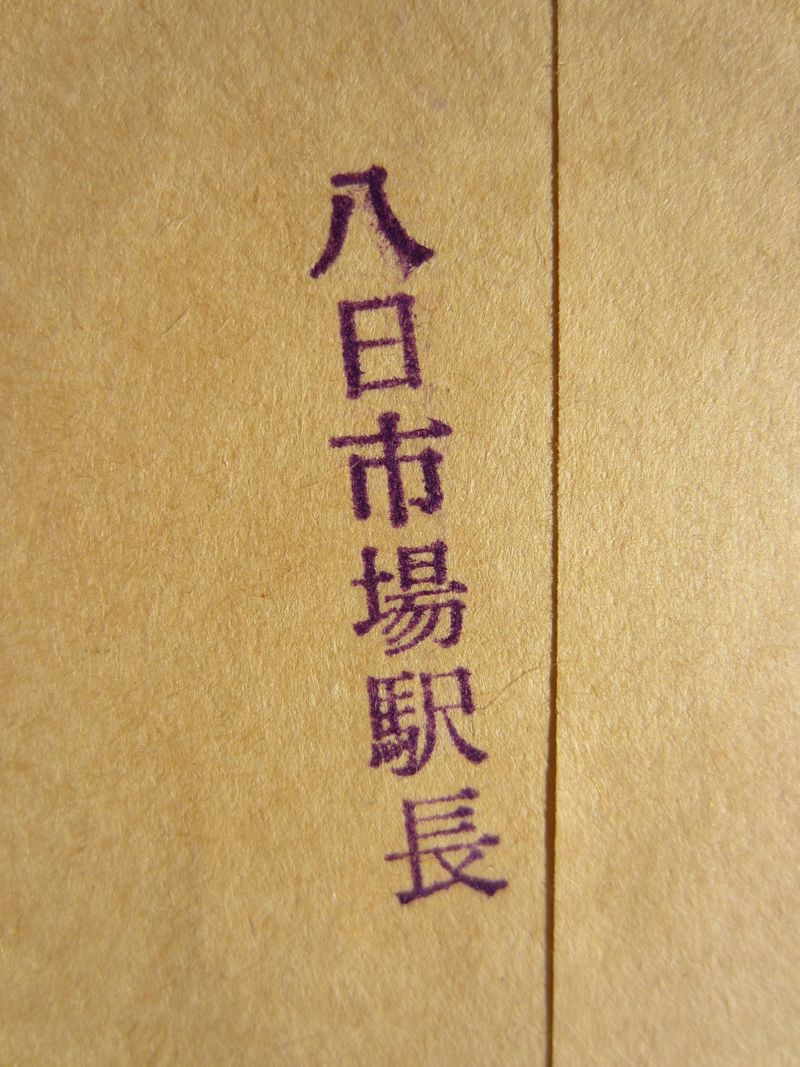 八日市場駅長